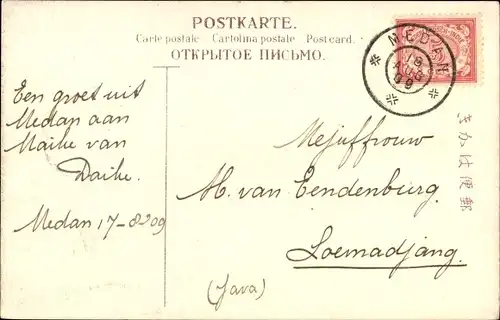 POSTKARTE.
Carte postale Cartolina postale Postcard.
ОТКРЫТОЕ ПИСЬМО.
MEDAN
18
AUG
09
Een groet uit
Medan aan
Maike van
Daike.
Medan 17-8209
Mejuffrouw
M. van Eendenburg.
Loemadjang.
(Java)
きかは便郵